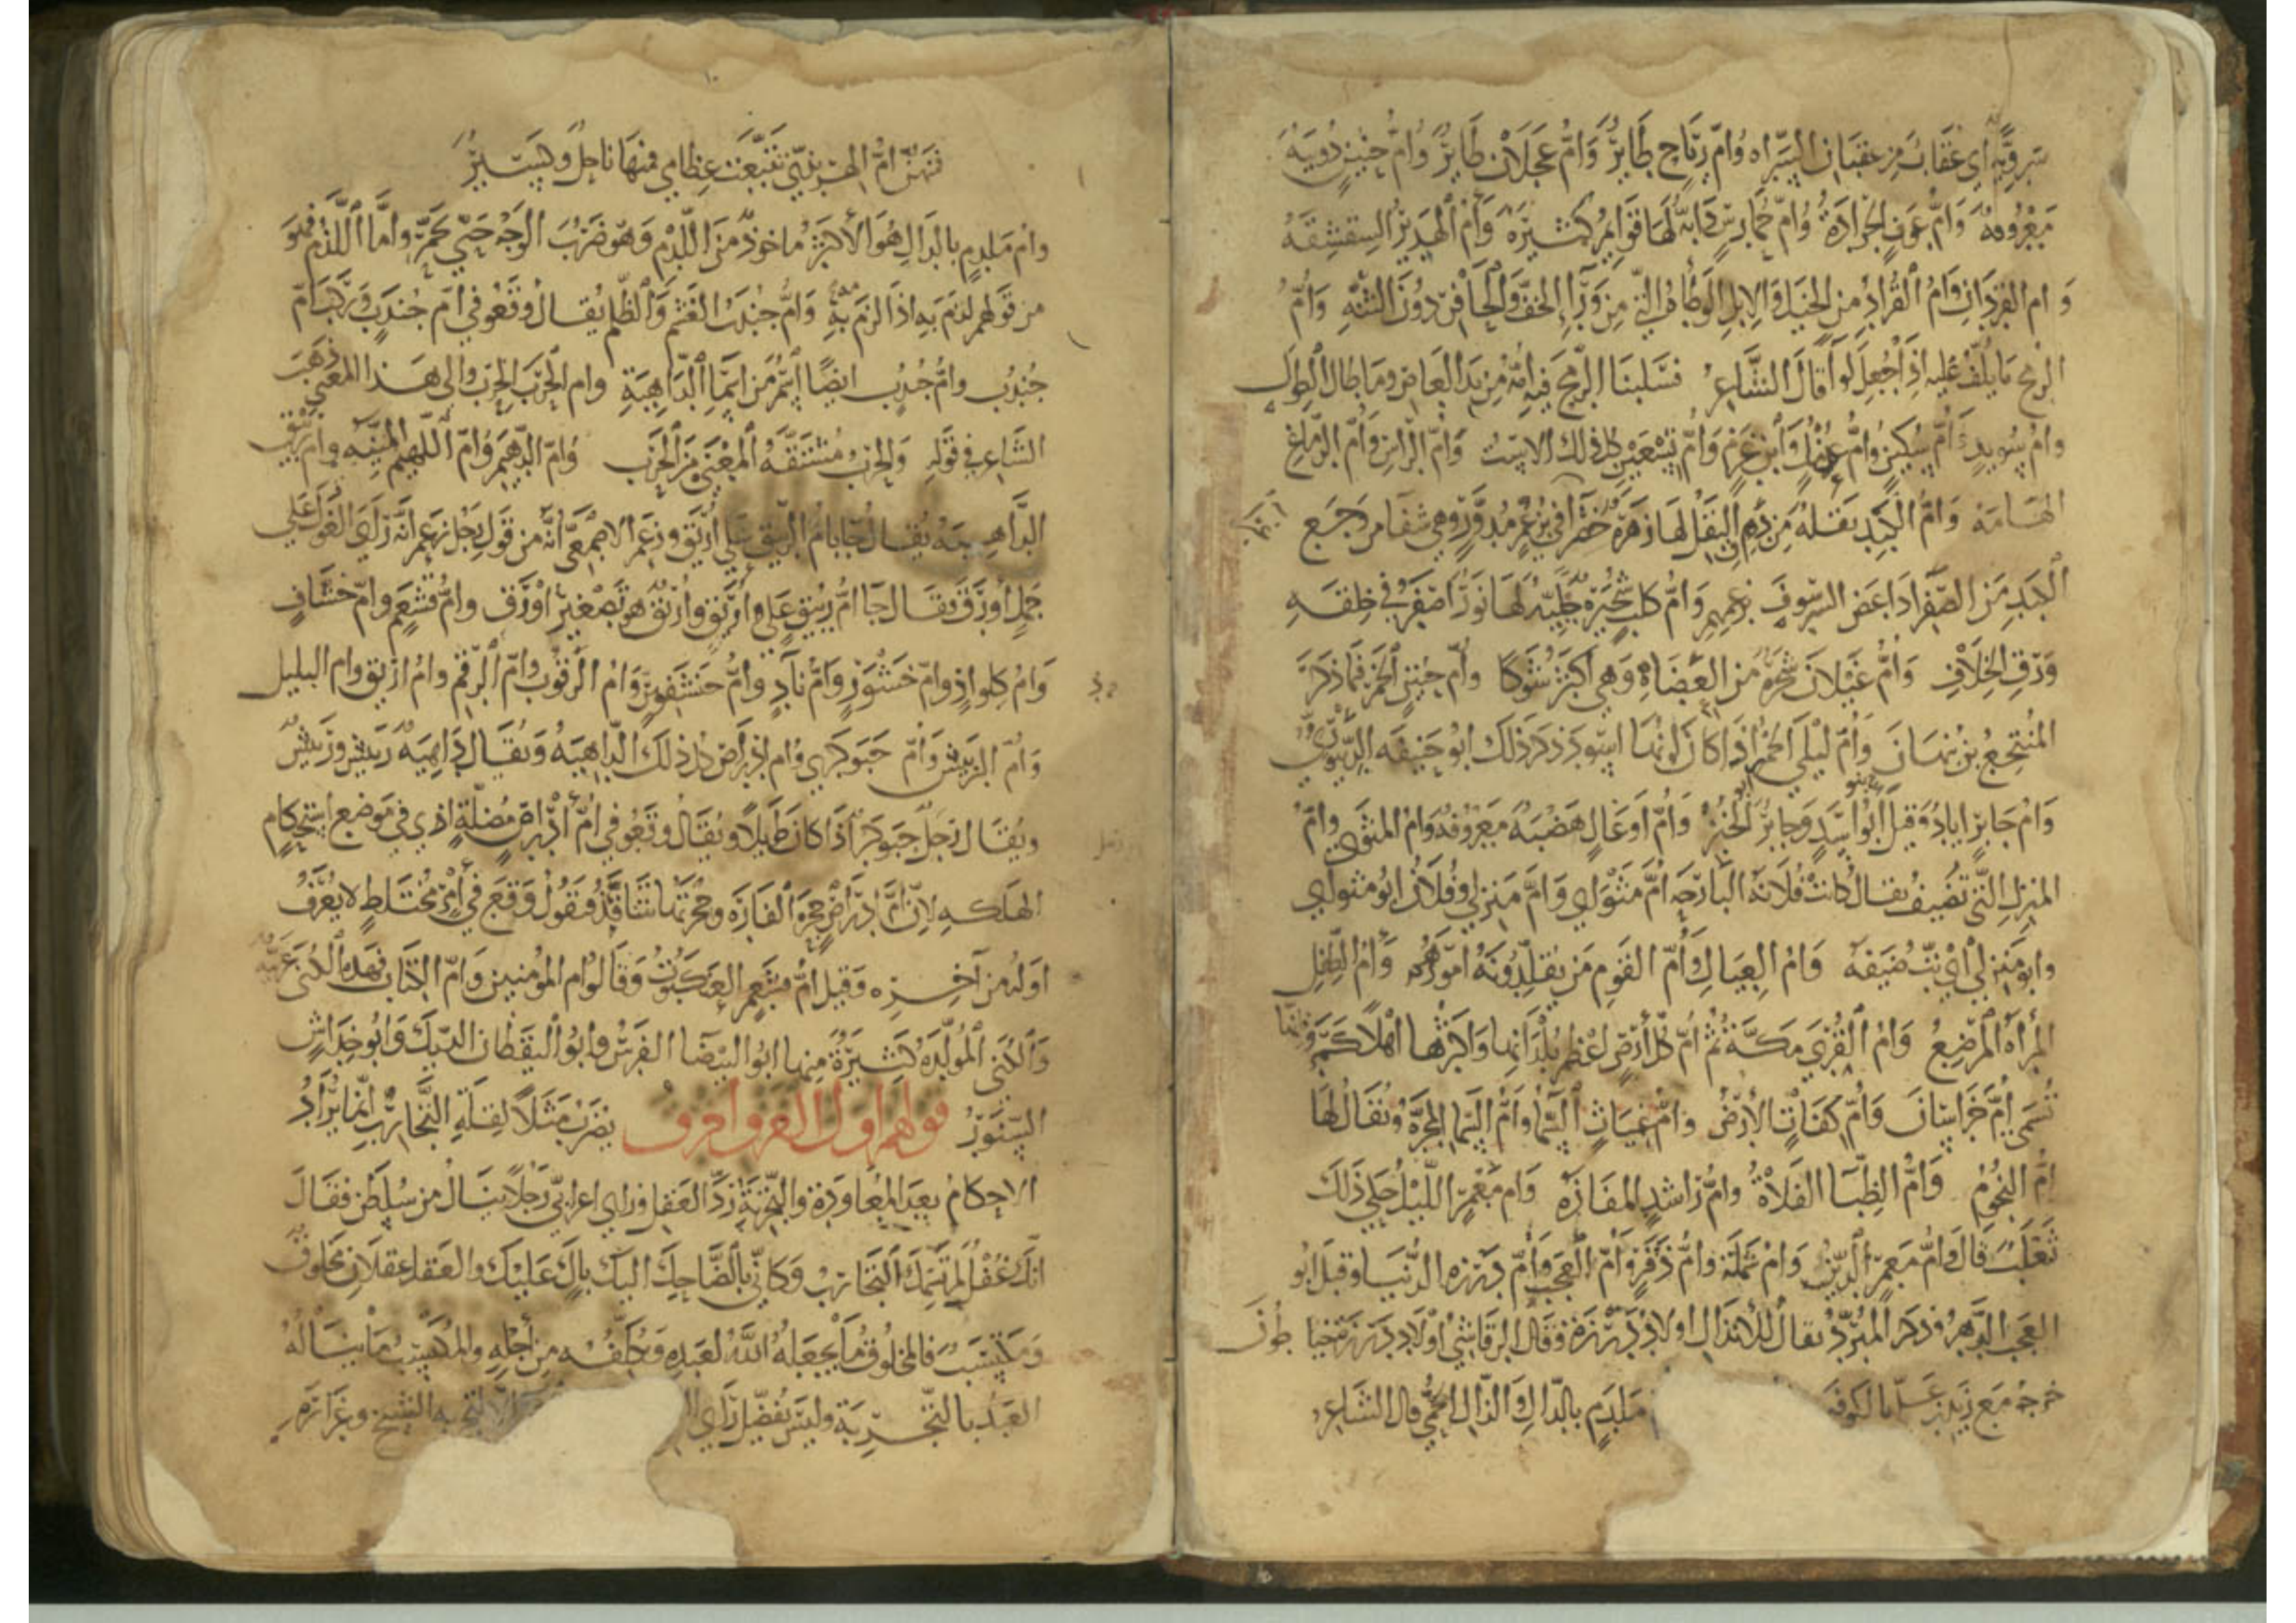 سروية أي عقاب من عقبان السراه وأم رباح طاير وأم عجلان طاير وأم حبين دويبة
معروفة وأم عوف الجرادة وأم حمارس دابة لها قوايم كثيرة وأم الهدير الشقشقه
وأم القردان وأم القراد من الخيل والابل الوطأة التي من ورا الخف والحافر دون الثنه وأم
الرمح ما يلف عليه اذا جعل لوا قال الشاعر فسلبنا الرمح فيه امه من يد العاص وما طال الطول
وام سويد وأم سكين وأم عزمل وأم عزم وأم تسعين كل ذلك الاست وأم الراس وأم الدماغ
الهامة وأم الكبد بقلة من دق البقل لها زهرة غبرا في برعم مدور وهي شفا من وجع
الكبد من الصفر اذا عض الشرسوف بزعمهم وأم كلب شجيرة جبلية لها نور أصفر في خلقه
ورق الخلاف وأم غيلان شجرة من العضاه وهي أكثر شوكا وأم حنين الخمر فيما ذكر
المنتجع بن نبهان وأم ليلى الخمر اذا كان لونها اسود ذكر ذلك ابو حنيفه الدينوري
وأم جابر اياد وقيل بنو أسد وجابر الخبز وأم أوعال هضبة معروفة وأم المثوى وأم
المنزل التي تضيف يقال كانت فلانة البارحه أم مثواي وأم منزلي وفلان ابو مثواي
وابو منزلي أي بت ضيفه وأم العيال وأم القوم من يقلدونه امورهم وأم الطفل
المرأة المرضع وأم القرى مكة ثم أم كل أرض أعظم بلدانها واكثرها اهلا كمرو فانها
تسمى أم خراسان وأم كفات الأرض وأم غياث السما وأم السما المجرة ويقال لها
أم النجوم وأم الظبا الفلاة وأم راشد المفازه وأم معمر الليل حكى ذلك
ثعلب قال وأم معمر وأم شملة وأم زفر وأم العجب وأم درزه الدنيا وقيل ابو
العجب الدهر وذكر المبرد يقال للأنذال اولاد درزة وقال الرقاشي أولاد درزة
خرجه مع زيد بن علي بالكوفه ملدم بالدال والذال الحمى قال الشاعر
فهن أم الهبرزي تتبعت عظامي فمنها ناحل وكسير
وأم ملدم بالدال هو الأكثر ماخوذ من اللدم وهو ضرب الوجه حتى يحمر وأما اللذم فهو
من قولهم لذم به اذا لزم به وأم جندب الغشم والظلم يقال وقعو في أم جندب وركب أم
جندب وأم جندب ايضا اسم من اسما الداهية وأم الحرب الحرب والى هذا المعنى ذهب
الشاعر في قوله والحرب مشتقه المعنى من الحرب وأم الدهيم وأم اللهيم المنيه وأم الربيق
الداهيه يقال جا بام الربيق على أريق وزعم الاصمعي أنه من قول رجل زعم انه راى الغول على
جمل أورق فقال جا أم ربيق على أريق وأريق هو تصغير أورق وأم قشعم وأم خشاف
وأم كلواذ وأم خنشور وأم ناد وأم خنشفير وأم الرقوب وأم الرقم وأم أريق وأم البليل
وأم الربيس وأم حبوكرى وأم أدراص كل ذلك الداهيه ويقال داهية ربيس
ويقال رجل حبوكر اذا كان طويلا ويقال وقعو في أم أدراص مضللة اذي في موضع استحكام
الهلكه لان أم أدراص جحرة الفارة وجحرتها تتنافذ فيقول وقع في أمر مختلط لا يعرف
اوله من آخره وقيل أم قشعم العنكبوت وقالوا أم المومنين وأم الكتاب فهذه الكنى عربية
والكنى المولدة كثيرة منها ابو البيضا الفرس وابو اليقظان الديك وابو خداش
السنور قولهم اول الغزو اخرق يضرب مثلا لقلة التجارب انما يراد
الاحكام بعد المعاودة والتجربة وراى اعرابي رجلا ينال من سلطان فقال
انك غفل لم تسمك التجارب وكاني بالضاحك اليك باك عليك والعقل عقلان مخلوق
ومكتسب فالمخلوق ما يجعله الله لعبده ويكلفه من أجله والمكتسب ما يناله
العبد بالتجربة وليس يفضل راي الشيخ وغزارة